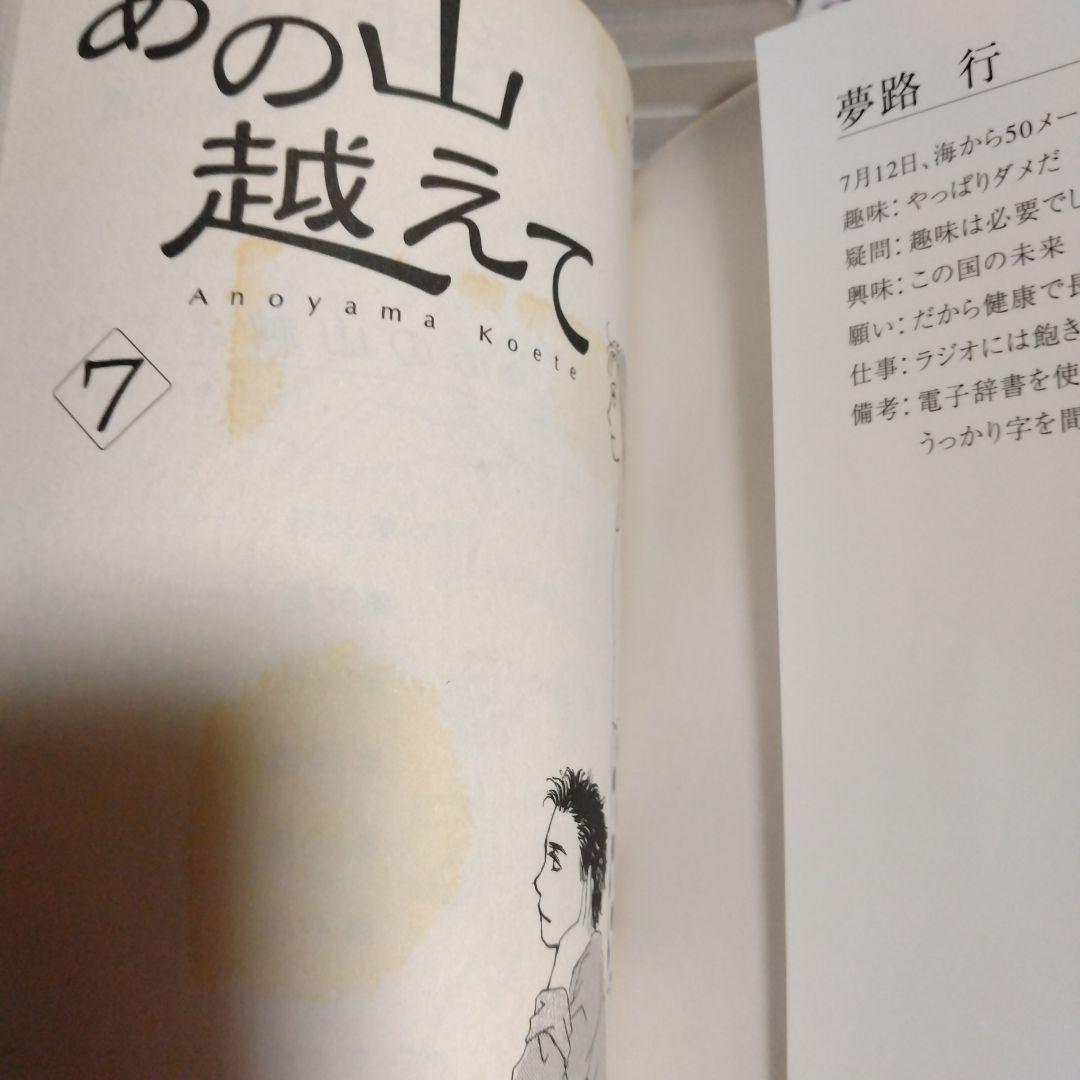 あの山
越えて
Anoyama Koete
7
夢路 行
7月12日、海から50メー
趣味：やっぱりダメだ
疑問：趣味は必要でし
興味：この国の未来
願い：だから健康で長
仕事：ラジオには飽き
備考：電子辞書を使
うっかり字を間